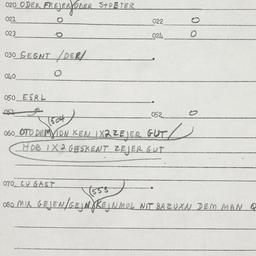 020 ODER FREJER ODER SPETER
021 0 022 0
023 0 024 0
030 GEGNT /DER/
040 0
050 ESRL
051 052 0
(504)
060 OT DEM IDN KEN 1X2 ZEJER GUT //
HOB 1X2 GESKENT ZEJER GUT
070 CU GAST
(555)
080 MIR GEJEN/GEJN KEJNMOL NIT BAZUXN DEM MAN